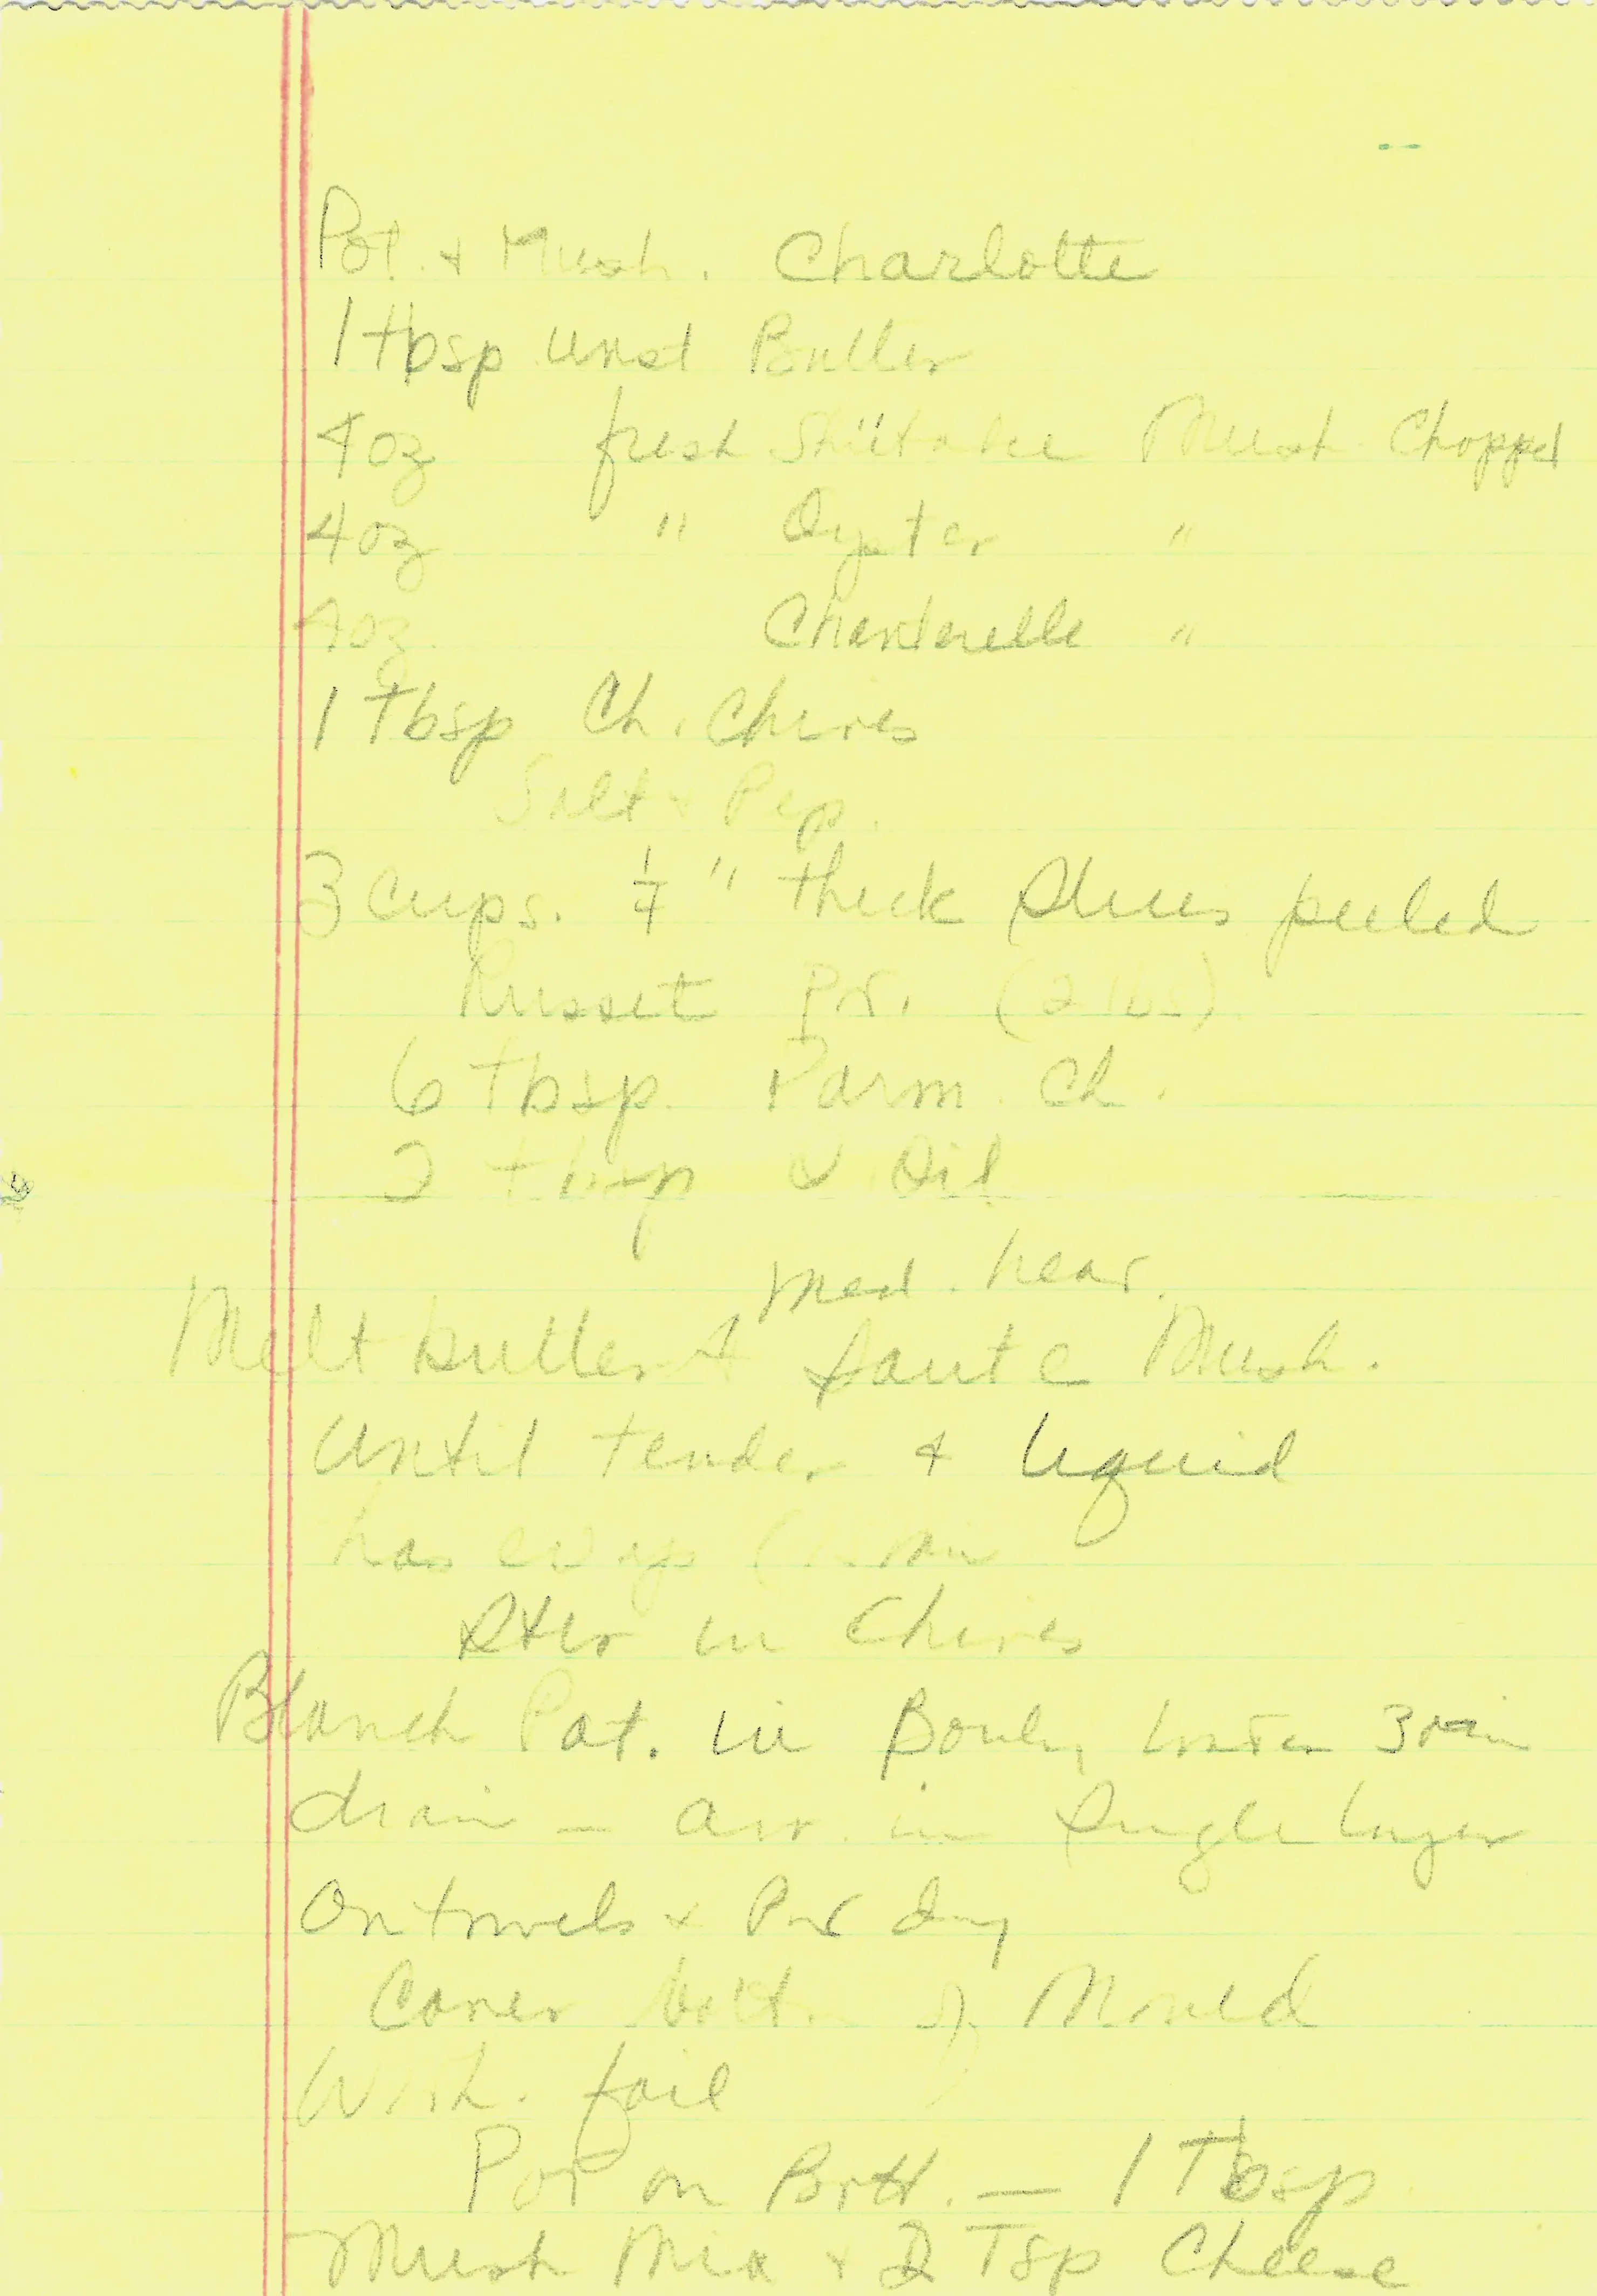 Pot. + Mush. Charlotte
1 tbsp unsl Butter
4 oz fresh Shiitake Mush Chopped
4 oz " Oyster "
4 oz. Chanterelle "
1 Tbsp Ch. Chives
Salt + Pep.
3 cups. 1/4 " thick Slices peeled
Russet Pot. (2 lbs)
6 Tbsp. Parm. Ch.
2 tbsp O. Oil
Med. heat.
Melt butter + Saute Mush.
Until tender + liquid
has evap
Stir in Chives
Blanch Pot. in Boiling water 3 min
drain — arr. in Single layer
On towels + Pat dry
Cover bott. of Mould
With. foil
Pot on Bott. — 1 Tbsp
Mush Mix + 2 Tsp Cheese